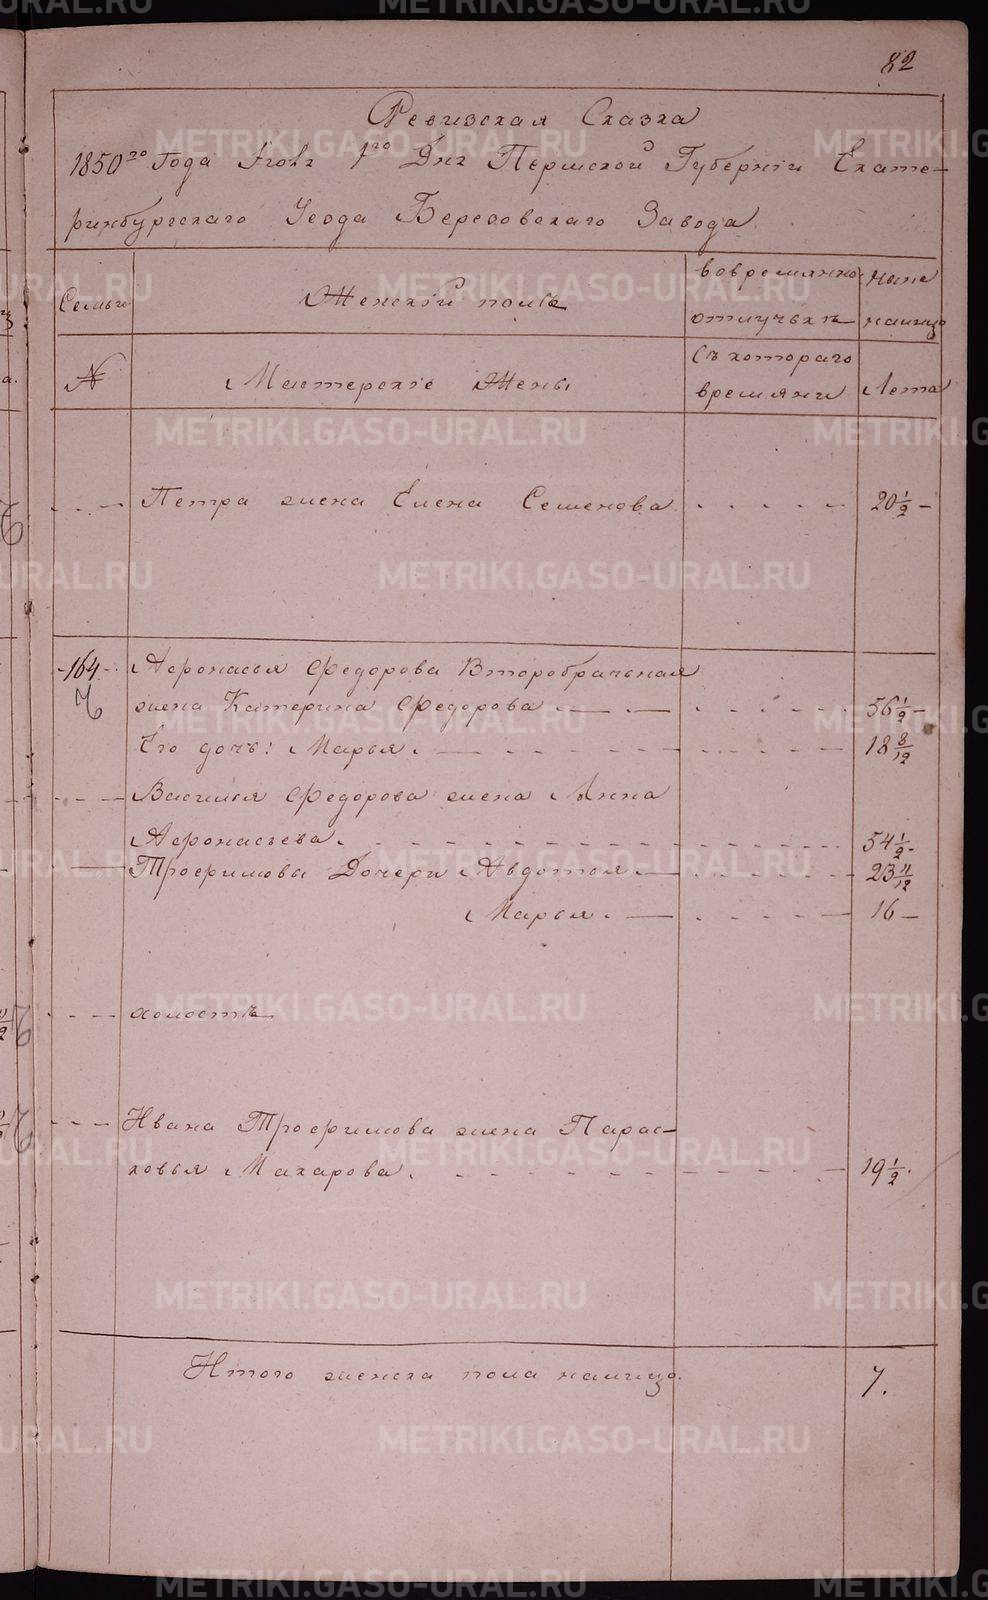 82
Ревизская Сказка
1850го Года Iюля 1го Дня Пермской Губернiи Екате-
ринбургскаго Уезда Березовскаго Завода
Семьи
Женскiй полъ
вовремянно
отлучкѣ
ныне
налицо
№
Мастерскiе Жены
Съ котораго
времяни
Лета
Петра жена Елена Семенова 20 1/2
164 Афонасья Федорова Второбрачьная
жена Катерина Федорова 56 1/2
Его дочь: Марья 18 8/12
Василья Федорова жена Анна
Афонасьева 54 1/2
Трофимовы Дочери Авдотья 23 11/12
Марья 16
холостъ
Ивана Трофимова жена Парас-
ковья Макарова 19 1/2
Итого женска пола налицо 7.
METRIKI.GASO-URAL.RU